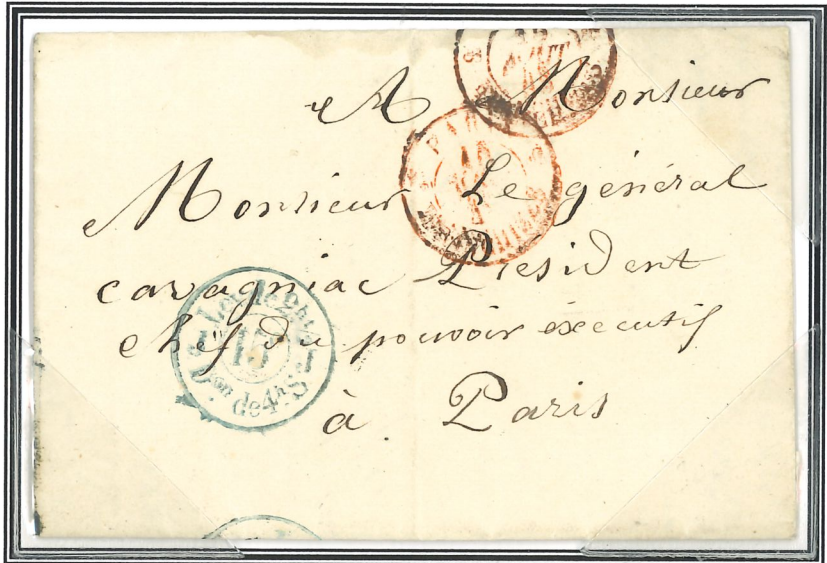 A Monsieur
Monsieur Le général
cavagniac President
chef du pouvoir éxecutif
à Paris
PARIS
15
Don de 4h S